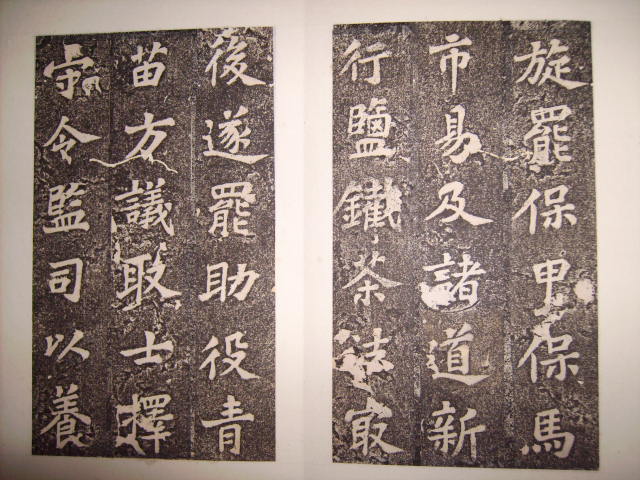 旋罷保甲保馬
市易及諸道新
行鹽鐵茶法㝡
後遂罷助役青
苗方議取士擇
守令監司以養